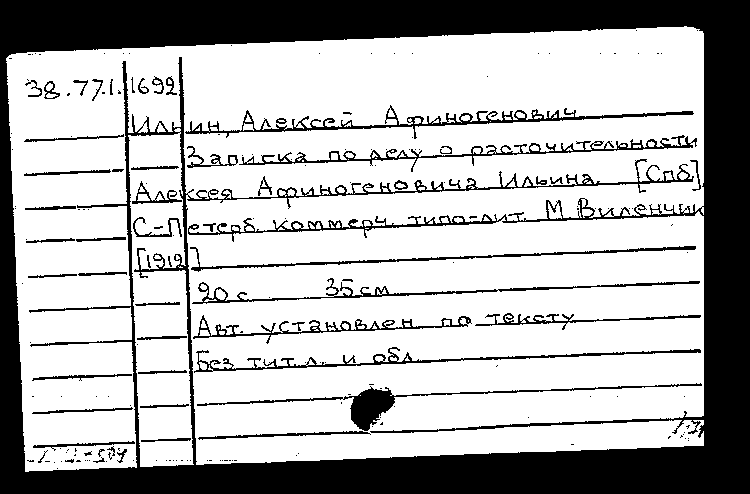 38.77.1.1692
Ильин, Алексей Афиногенович
Записка по делу о расточительности
Алексея Афиногеновича Ильина. [Спб],
С-Петерб. коммерч. типо-лит. М Виленчик
[1912]
20 с. 35 см
Авт. установлен по тексту
Без тит. л. и обл.